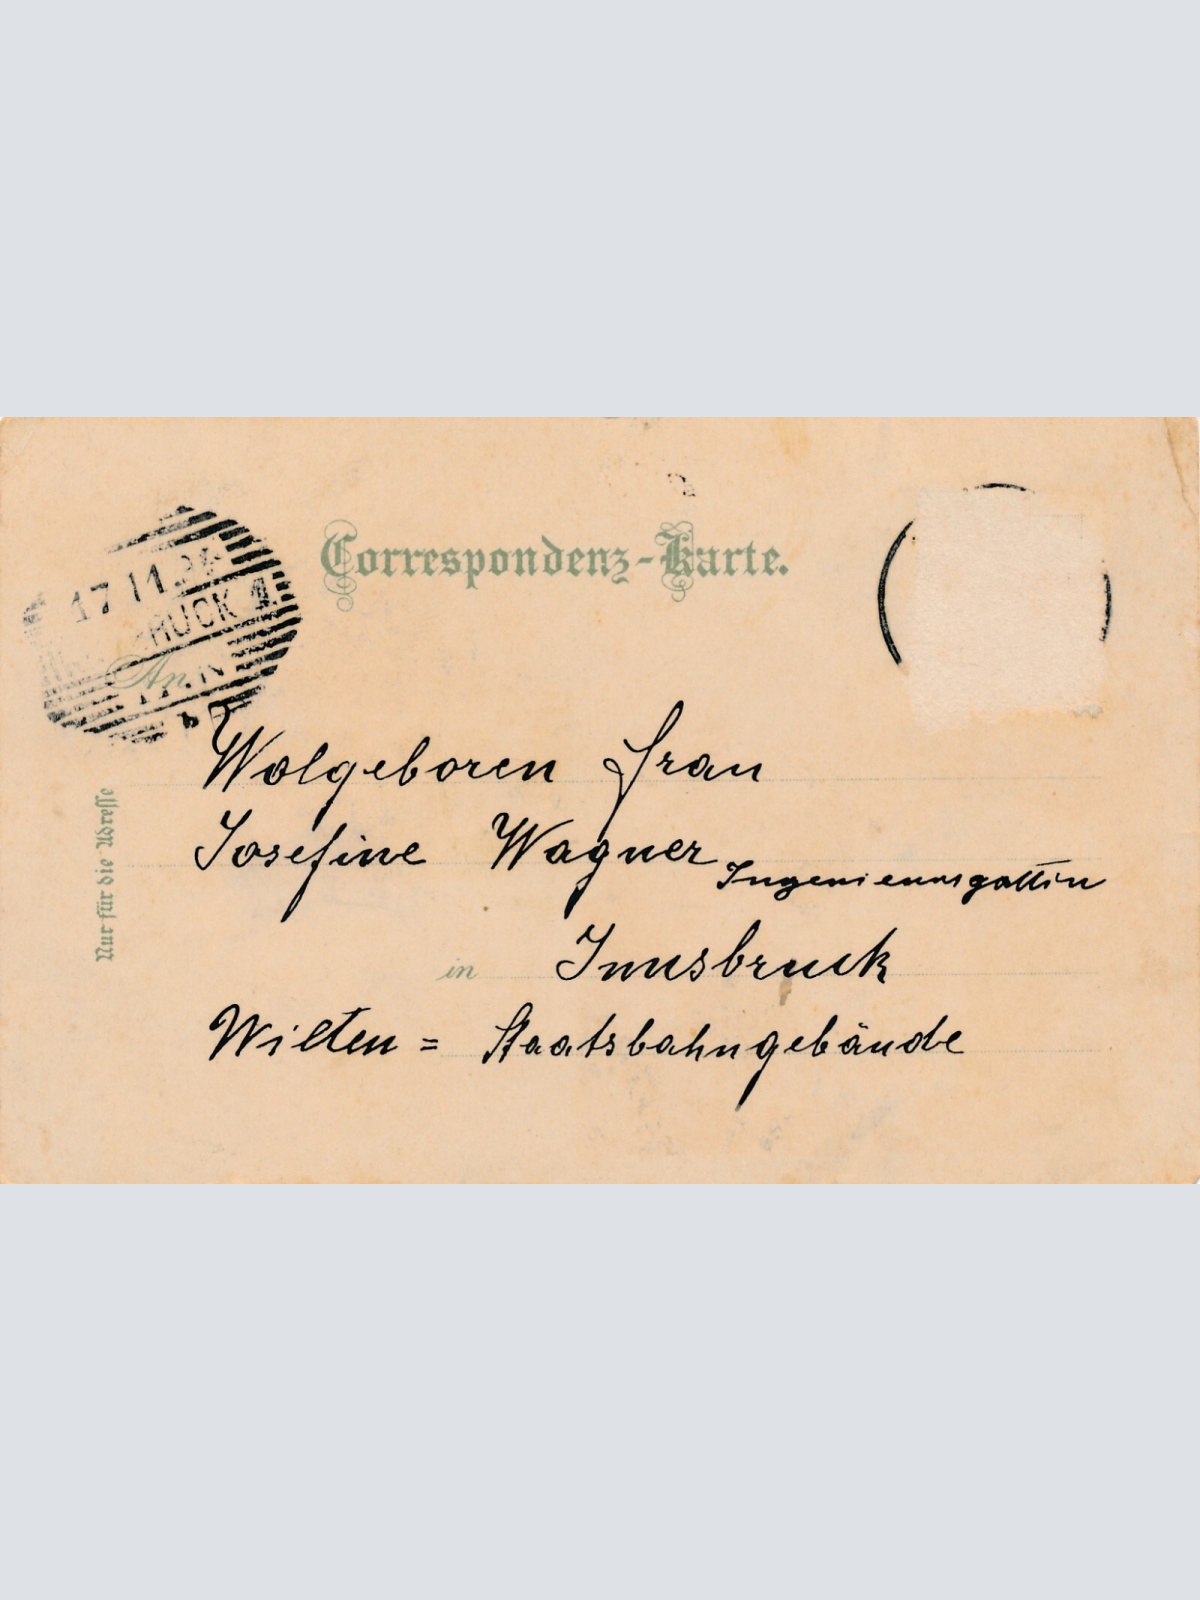 Correspondenz-Karte.
17 11
RUCK 1
An
Wolgeboren Frau
Josefine Wagner
Ingenieursgattin
in Innsbruck
Wilten = Staatsbahngebäude
Nur für die Adresse